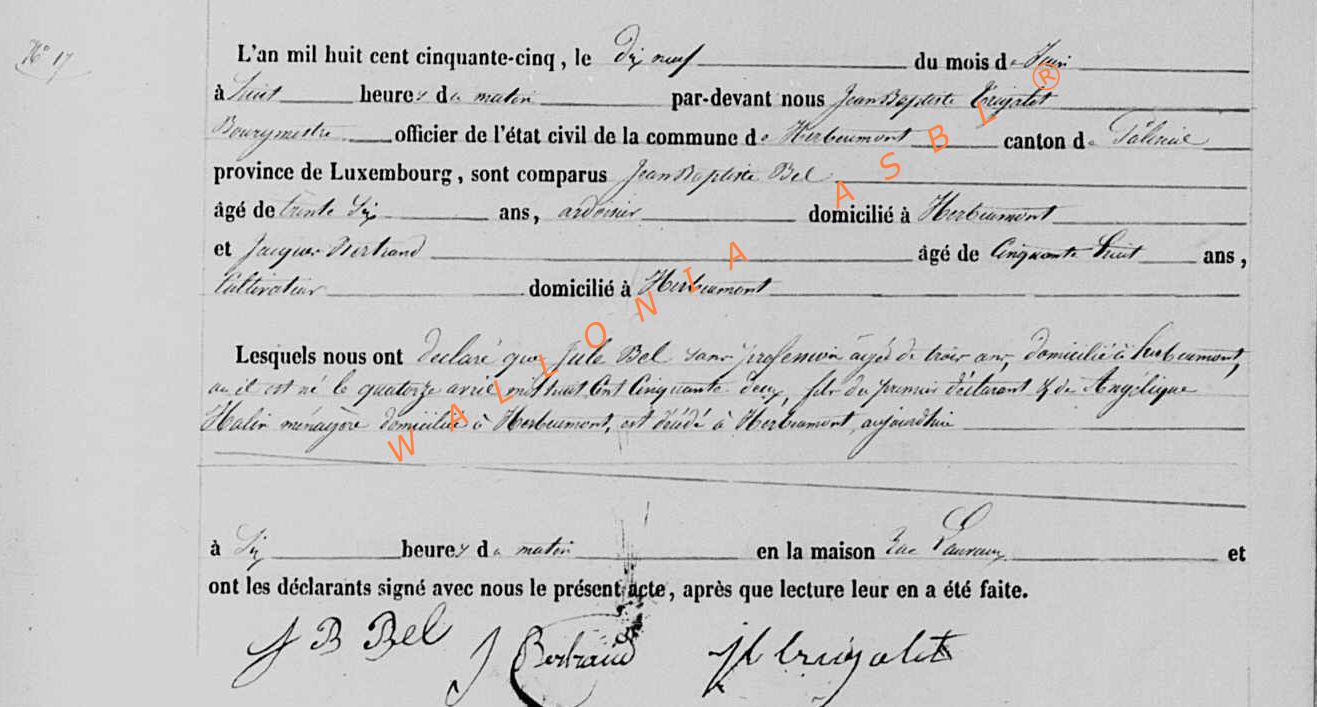 N° 17
L'an mil huit cent cinquante-cinq, le Dix neuf du mois de Juin
à huit heures du matin par-devant nous Jean Baptiste Trigalet
Bourgmestre officier de l'état civil de la commune de Herbeumont canton de Paliseul
province de Luxembourg, sont comparus Jean Baptiste Bel
âgé de trente Six ans, ardoisier domicilié à Herbeumont
et Jacques Bertrand âgé de Cinquante huit ans,
Cultivateur domicilié à Herbeumont
Lesquels nous ont déclaré que Jule Bel sans profession âgé de trois ans, domicilié à herbeumont,
où il est né le quatorze avril mil huit Cent Cinquante deux, fils du premier déclarant & de Angélique
Halin ménagère domiciliée à Herbeumont, est décédé à Herbeumont, aujourd'hui
à Six heures du matin en la maison et
ont les déclarants signé avec nous le présent acte, après que lecture leur en a été faite.
J B Bel J Bertrand J B trigalet
WALLONIA ASBL ®